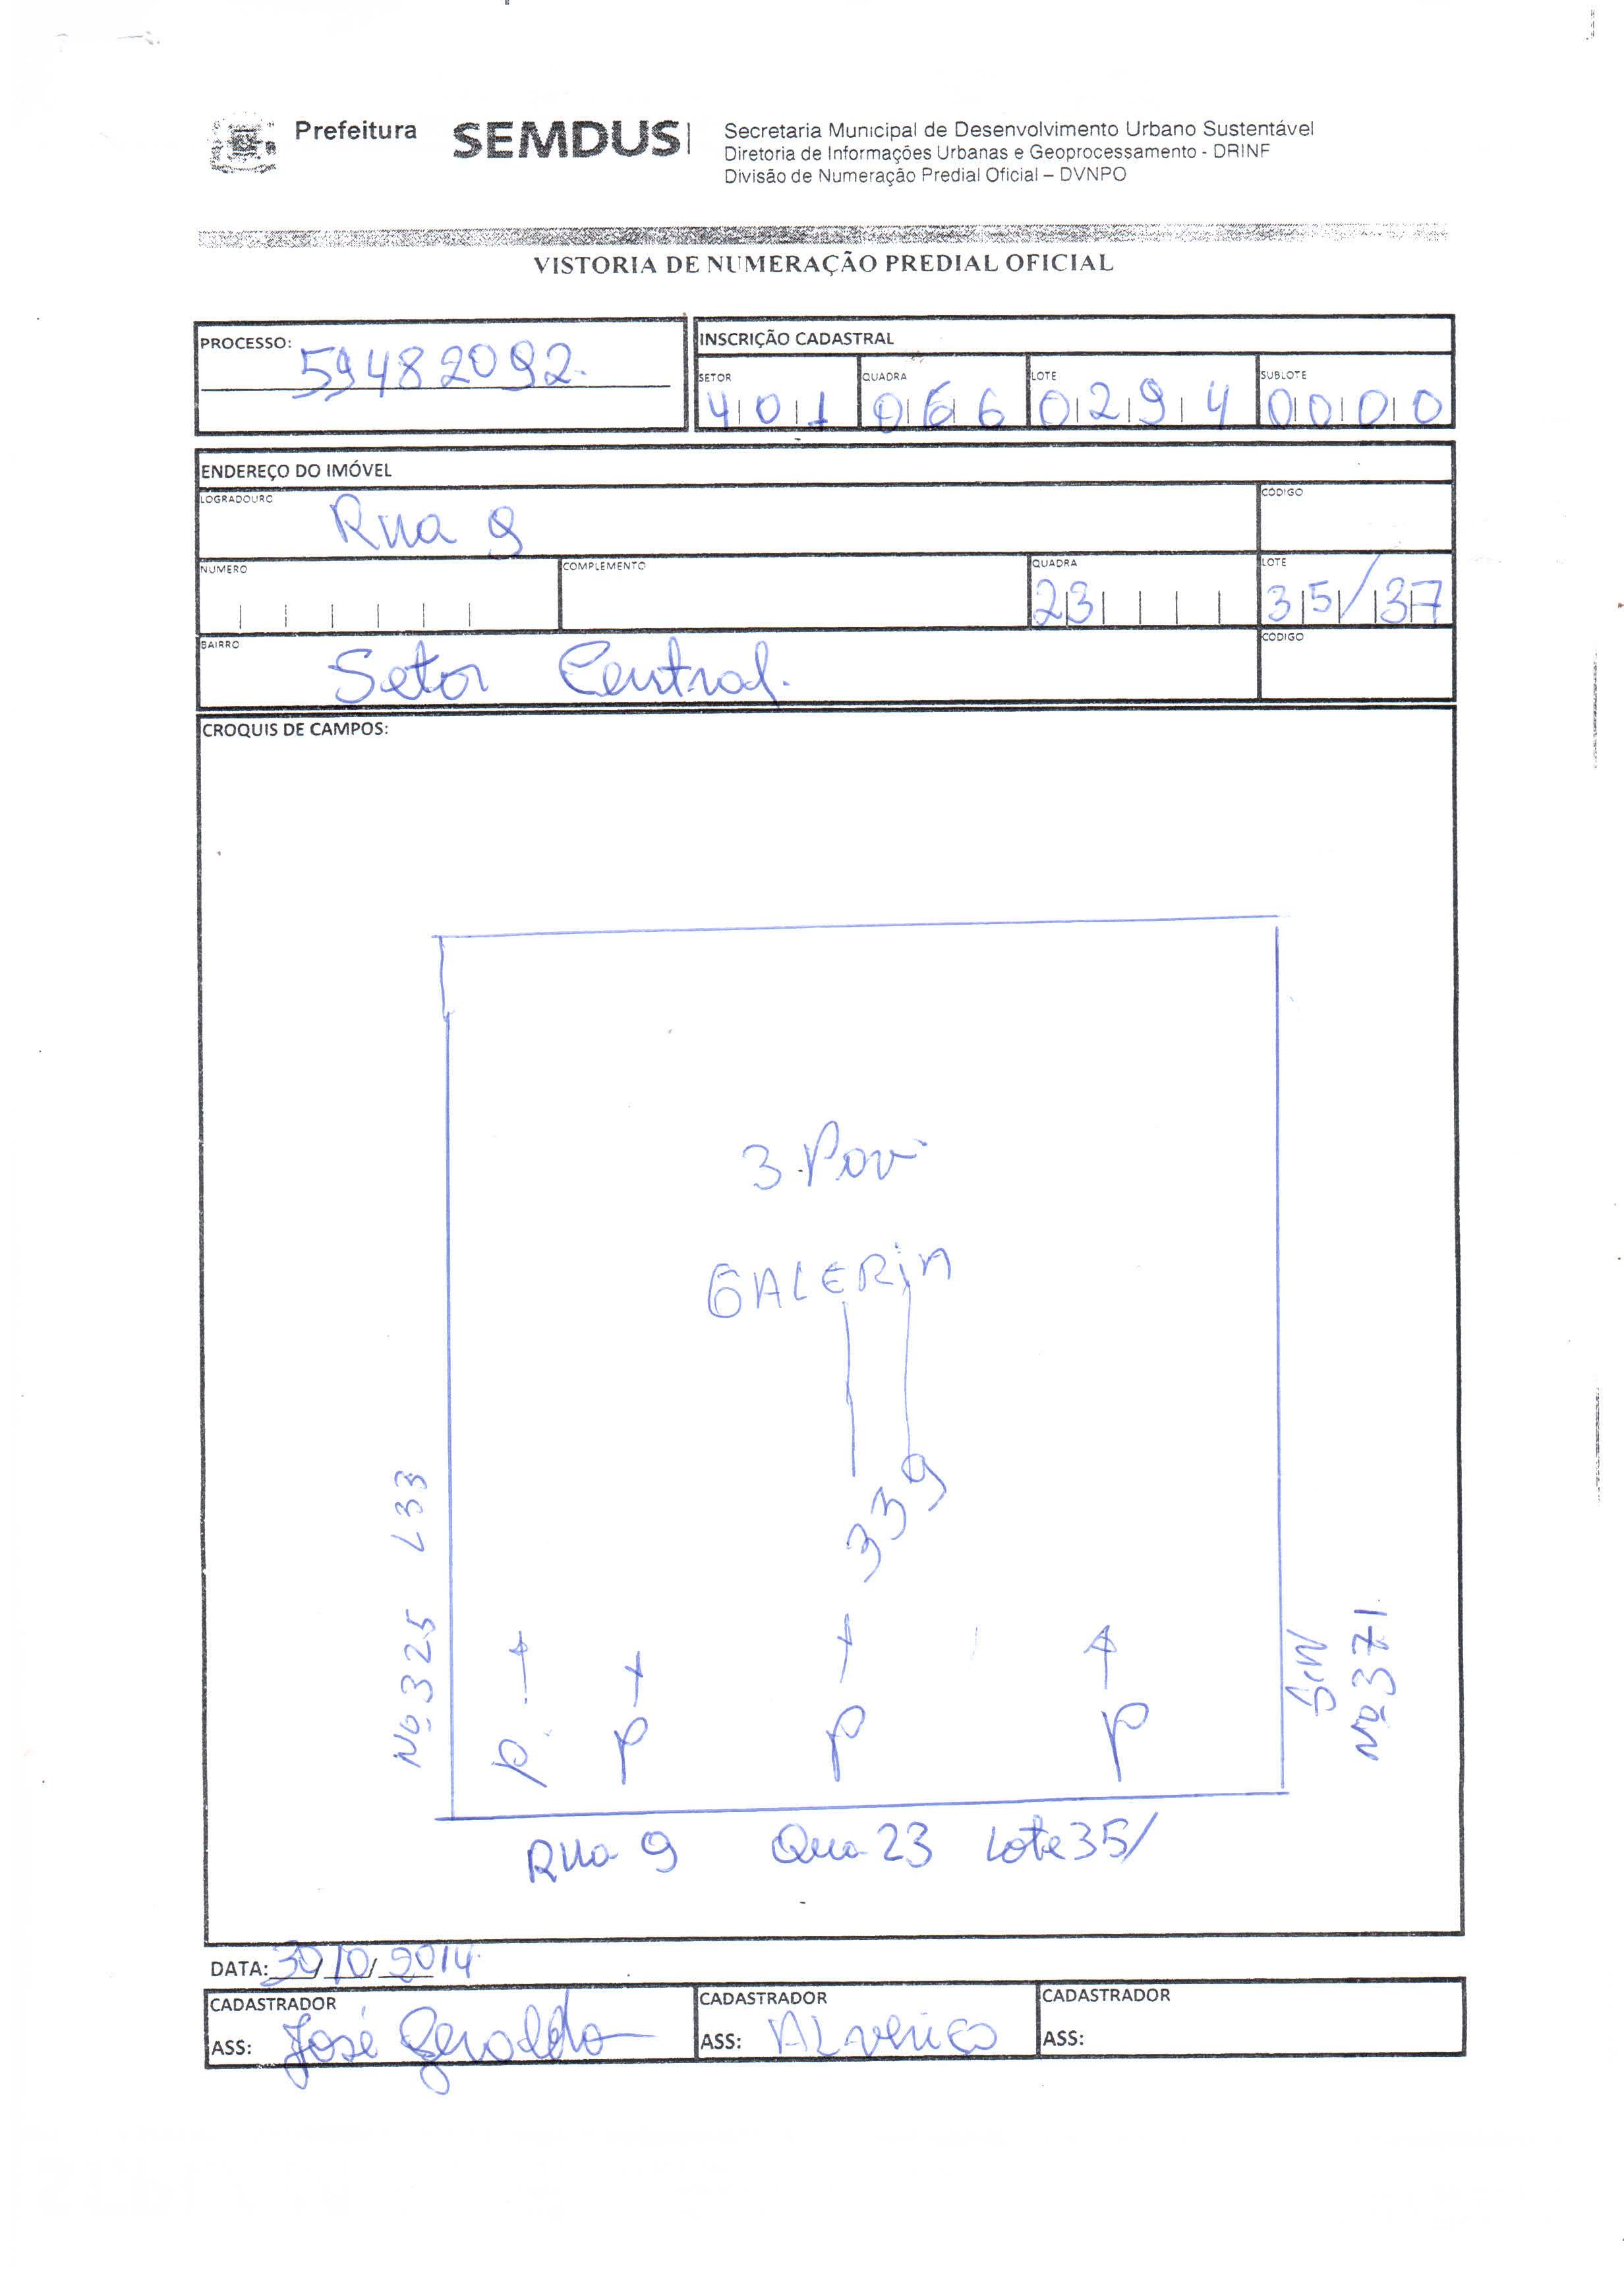 Prefeitura SEMDUS
Secretaria Municipal de Desenvolvimento Urbano Sustentável
Diretoria de Informações Urbanas e Geoprocessamento - DRINF
Divisão de Numeração Predial Oficial – DVNPO
VISTORIA DE NUMERAÇÃO PREDIAL OFICIAL
PROCESSO: 59482092.
INSCRIÇÃO CADASTRAL
SETOR QUADRA LOTE SUBLOTE
401 066 0294 0000
ENDEREÇO DO IMÓVEL
LOGRADOURO CÓDIGO
Rua 9
NUMERO COMPLEMENTO QUADRA LOTE
23 35/37
BAIRRO CÓDIGO
Setor Central.
CROQUIS DE CAMPOS:
3 Pav
GALERIA
339
Nº 325 L33
S/N
Nº 371
P P P P
Rua 9 Qua 23 Lote 35/
DATA: 30/10/2014
CADASTRADOR CADASTRADOR CADASTRADOR
ASS: José Geraldo ASS: ASS: